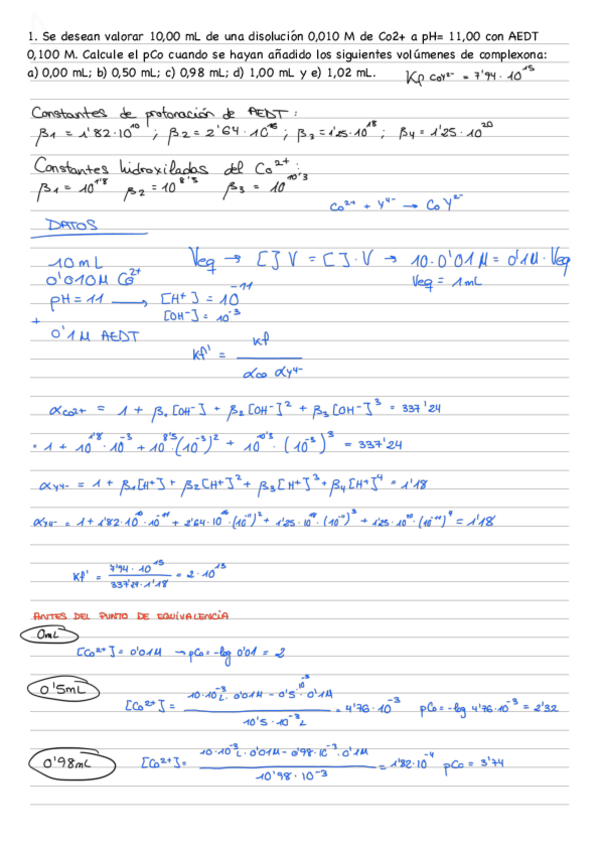 1. Se desean valorar 10,00 mL de una disolución 0,010 M de Co2+ a pH= 11,00 con AEDT
0,100 M. Calcule el pCo cuando se hayan añadido los siguientes volúmenes de complexona:
a) 0,00 mL; b) 0,50 mL; c) 0,98 mL; d) 1,00 mL y e) 1,02 mL. Kf CoY²⁻ = 7'94 · 10¹⁵
Constantes de protonación de AEDT:
β1 = 1'82·10¹⁰ ; β2 = 2'64·10¹⁶ ; β3 = 1'25·10¹⁸ ; β4 = 1'25·10²⁰
Constantes hidroxiladas del Co²⁺:
β1 = 10^1'8 β2 = 10^8'5 β3 = 10^10'3
Co²⁺ + Y⁴⁻ → CoY²⁻
DATOS
10mL Veq → [ ]·V = [ ]·V → 10·0'01M = 0'1M·Veq
0'010M Co²⁺ Veq = 1mL
pH = 11 → [H⁺] = 10⁻¹¹
[OH⁻] = 10⁻³
+
0'1M AEDT
Kf' = Kf / αCo αY⁴⁻
αCo²⁺ = 1 + β1[OH⁻] + β2[OH⁻]² + β3[OH⁻]³ = 337'24
= 1 + 10^1'8 · 10⁻³ + 10^8'5 · (10⁻³)² + 10^10'3 · (10⁻³)³ = 337'24
αY⁴⁻ = 1 + β1[H⁺] + β2[H⁺]² + β3[H⁺]³ + β4[H⁺]⁴ = 1'18
αY⁴⁻ = 1 + 1'82·10¹⁰·10⁻¹¹ + 2'64·10¹⁶·(10⁻¹¹)² + 1'25·10¹⁸·(10⁻¹¹)³ + 1'25·10²⁰·(10⁻¹¹)⁴ = 1'18
Kf' = 7'94 · 10¹⁵ / 337'24 · 1'18 = 2 · 10¹³
ANTES DEL PUNTO DE EQUIVALENCIA
0mL
[Co²⁺] = 0'01M → pCo = -log 0'01 = 2
0'5mL
[Co²⁺] = 10·10⁻³L · 0'01M - 0'5·10⁻³ · 0'1M / 10'5 · 10⁻³L = 4'76·10⁻³ pCo = -log 4'76·10⁻³ = 2'32
0'98mL
[Co²⁺] = 10·10⁻³L · 0'01M - 0'98·10⁻³ · 0'1M / 10'98 · 10⁻³ = 1'82·10⁻⁴ pCo = 3'74